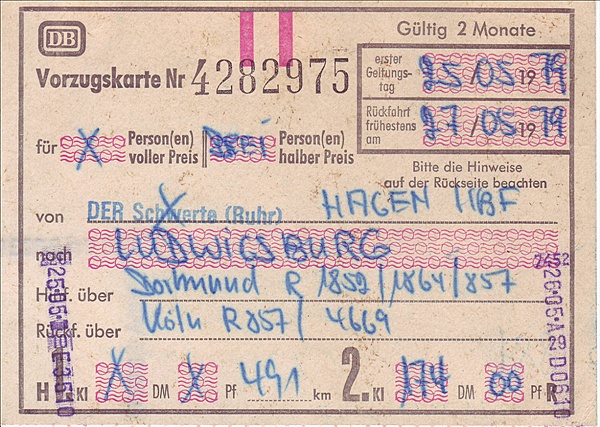 DB
Gültig 2 Monate
Vorzugskarte Nr 4282975
erster Geltungstag 25/05 19 79
Rückfahrt frühestens am 27/05 19 79
für X Person(en) voller Preis DREI Person(en) halber Preis
Bitte die Hinweise
auf der Rückseite beachten
von DER Schwerte (Ruhr) HAGEN HBF
nach LUDWIGSBURG
Hinf. über Dortmund R 1852/1864/857
Rückf. über Köln R 857/ 4669
H Kl X DM X Pf 491 km 2. Kl 174 DM 00 Pf R